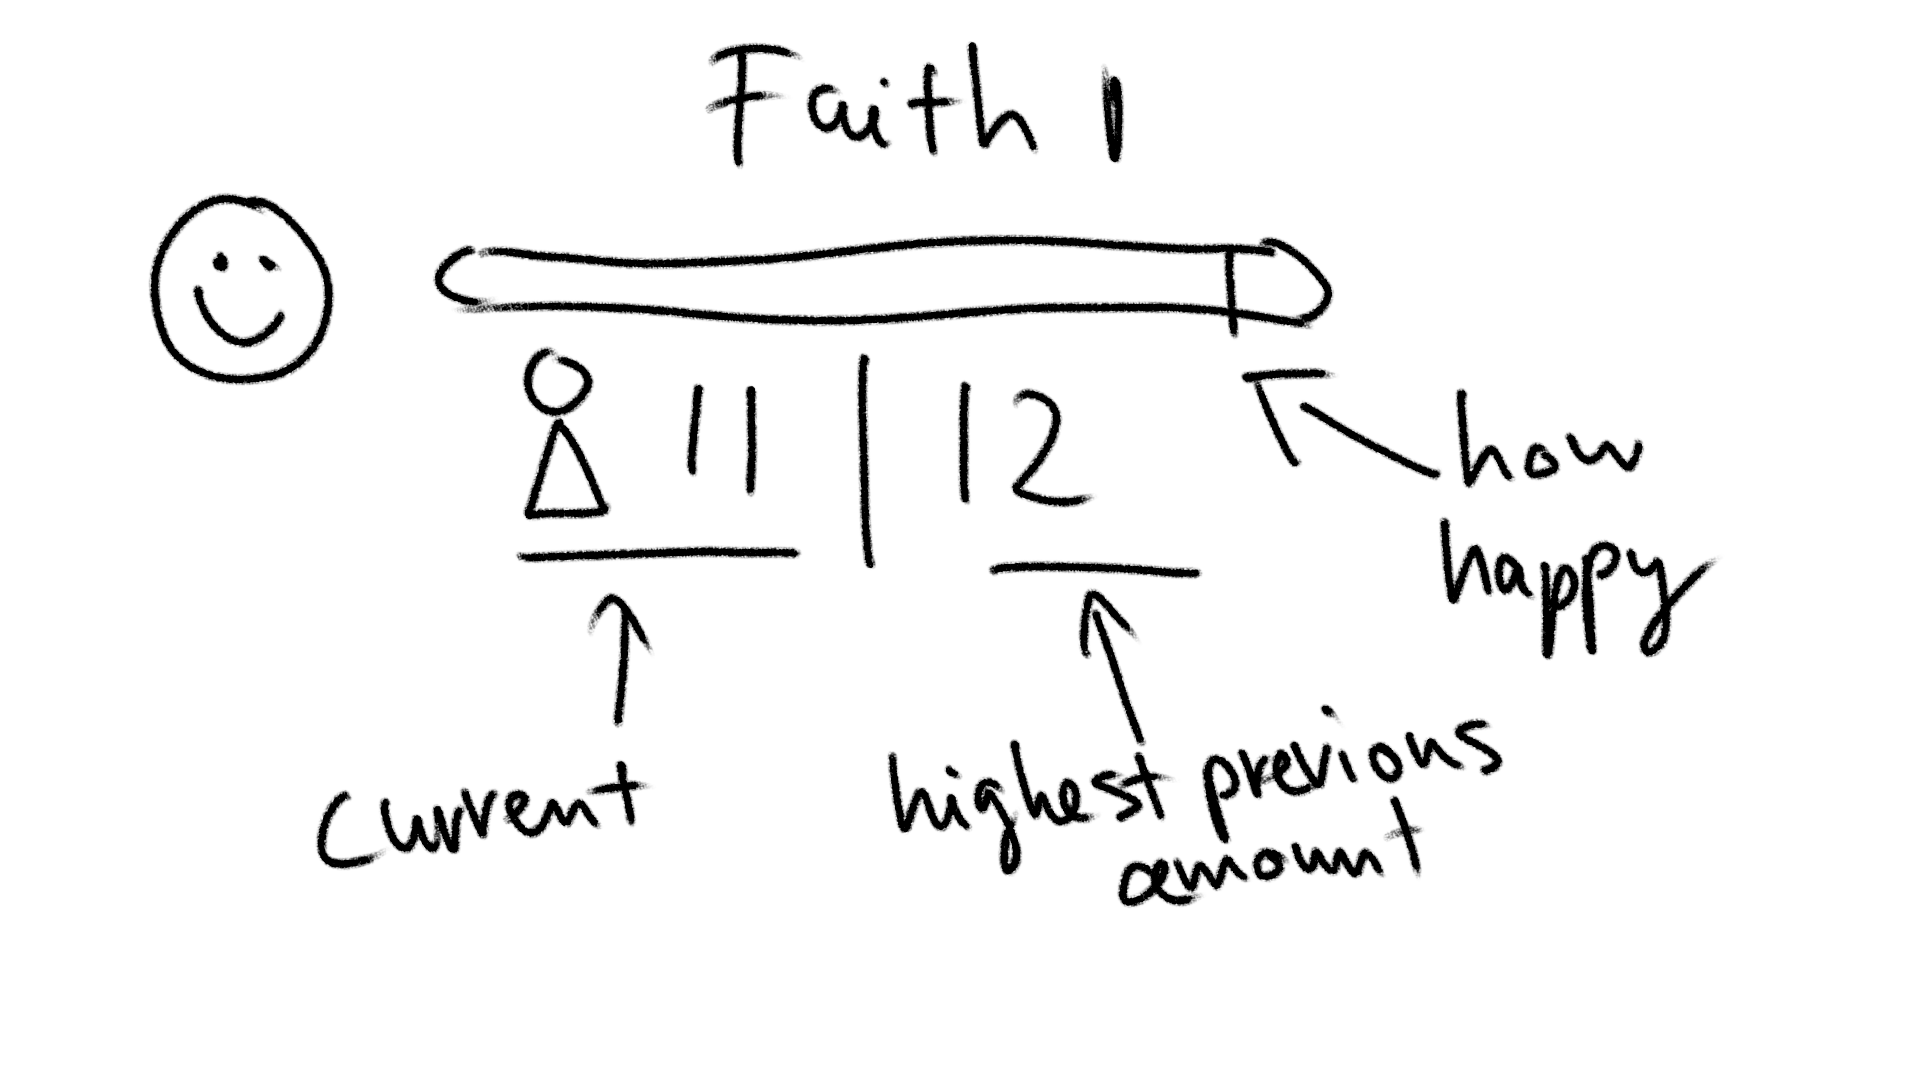 Faith 1
11 | 12
how
happy
current
highest previous
amount